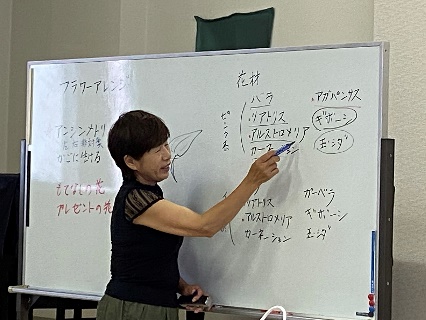 フラワーアレンジ
アシンメトリ
かごに生ける
もてなしの花
プレゼントの花
花材
ピンク系
バラ
リアトリス
アルストロメリア
カーネーション
・アガパンサス
ギボーシ
玉・シダ
リアトリス
アルストロメリア
カーネーション
ガーベラ
ギボーシ
玉・シダ